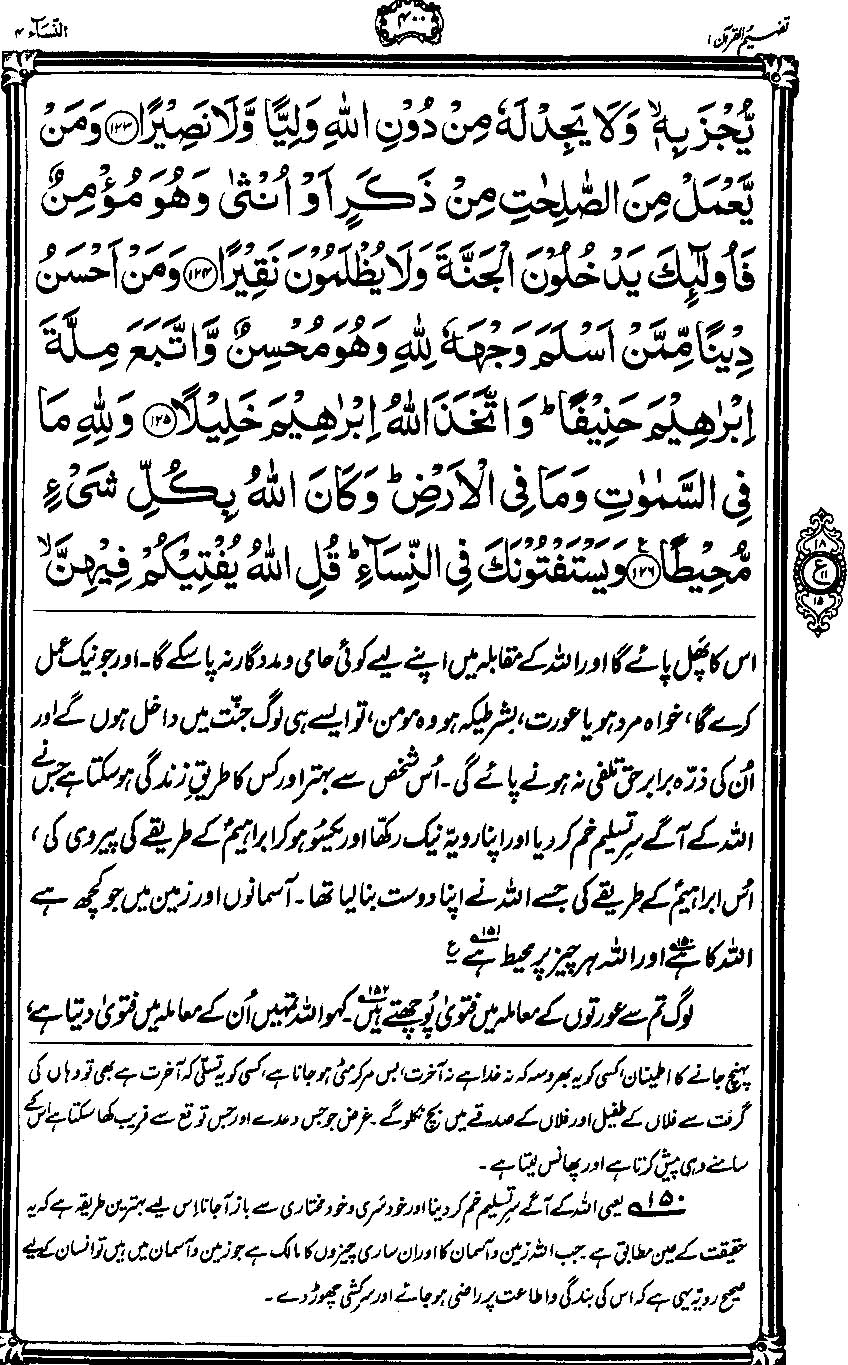 تفہیم القرآن ۱
۴۰۰
النّسآء ۴
يُّجْزَ بِهٖ ۙ وَلَا يَجِدْ لَهٗ مِنْ دُوْنِ اللّٰهِ وَلِيًّا وَّلَا نَصِيْرًا ﴿۱۲۳﴾ وَمَنْ
يَّعْمَلْ مِنَ الصّٰلِحٰتِ مِنْ ذَكَرٍ اَوْ اُنْثٰى وَهُوَ مُؤْمِنٌ
فَاُولٰٓئِكَ يَدْخُلُوْنَ الْجَنَّةَ وَلَا يُظْلَمُوْنَ نَقِيْرًا ﴿۱۲۴﴾ وَمَنْ اَحْسَنُ
دِيْنًا مِّمَّنْ اَسْلَمَ وَجْهَهٗ لِلّٰهِ وَهُوَ مُحْسِنٌ وَّاتَّبَعَ مِلَّةَ
اِبْرٰهِيْمَ حَنِيْفًا ؕ وَاتَّخَذَ اللّٰهُ اِبْرٰهِيْمَ خَلِيْلًا ﴿۱۲۵﴾ وَلِلّٰهِ مَا
فِى السَّمٰوٰتِ وَمَا فِى الْاَرْضِ ؕ وَكَانَ اللّٰهُ بِكُلِّ شَىْءٍ
مُّحِيْطًا ﴿۱۲۶﴾ ع وَيَسْتَفْتُوْنَكَ فِى النِّسَآءِ ؕ قُلِ اللّٰهُ يُفْتِيْكُمْ فِيْهِنَّ ۙ
۱۸
ع ۱۱
۱۵
اس کا پھل پائے گا اور اللہ کے مقابلہ میں اپنے لیے کوئی حامی و مددگار نہ پا سکے گا۔ اور جو نیک عمل
کرے گا، خواہ مرد ہو یا عورت، بشرطیکہ ہو وہ مومن، تو ایسے ہی لوگ جنّت میں داخل ہوں گے اور
اُن کی ذرّہ برابر حق تلفی نہ ہونے پائے گی۔ اُس شخص سے بہتر اور کس کا طریقِ زندگی ہو سکتا ہے جس نے
اللہ کے آگے سرِ تسلیم خم کر دیا اور اپنا رویّہ نیک رکھا اور یکسُو ہو کر ابراہیمؑ کے طریقے کی پیروی کی،
اُس ابراہیمؑ کے طریقے کی جسے اللہ نے اپنا دوست بنا لیا تھا۔ آسمانوں اور زمین میں جو کچھ ہے
اللہ کا ہے۱۵۰ اور اللہ ہر چیز پر محیط ہے۱۵۱ ع
لوگ تم سے عورتوں کے معاملہ میں فتویٰ پُوچھتے ہیں۱۵۲۔ کہو اللہ تمہیں اُن کے معاملہ میں فتویٰ دیتا ہے،
پہنچ جانے کا اطمینان، کسی کو یہ بھروسہ کہ نہ خدا ہے نہ آخرت، بس مر کر مٹی ہو جانا ہے، کسی کو یہ تسلّی کہ آخرت ہے بھی تو وہاں کی
گرفت سے فلاں کے طفیل اور فلاں کے صدقے میں بچ نکلو گے۔ غرض جو جس وعدے اور جس توقع سے فریب کھا سکتا ہے اُس کے
سامنے وہی پیش کرتا ہے اور پھانس لیتا ہے۔
۱۵۰ یعنی اللہ کے آگے سرِ تسلیم خم کر دینا اور خود سَری و خود مختاری سے باز آجانا اِس لیے بہترین طریقہ ہے کہ یہ
حقیقت کے عین مطابق ہے۔ جب اللہ زمین و آسمان کا اور ان ساری چیزوں کا مالک ہے جو زمین و آسمان میں ہیں تو انسان کے لیے
صحیح رویّہ یہی ہے کہ اس کی بندگی و اطاعت پر راضی ہو جائے اور سرکشی چھوڑ دے۔